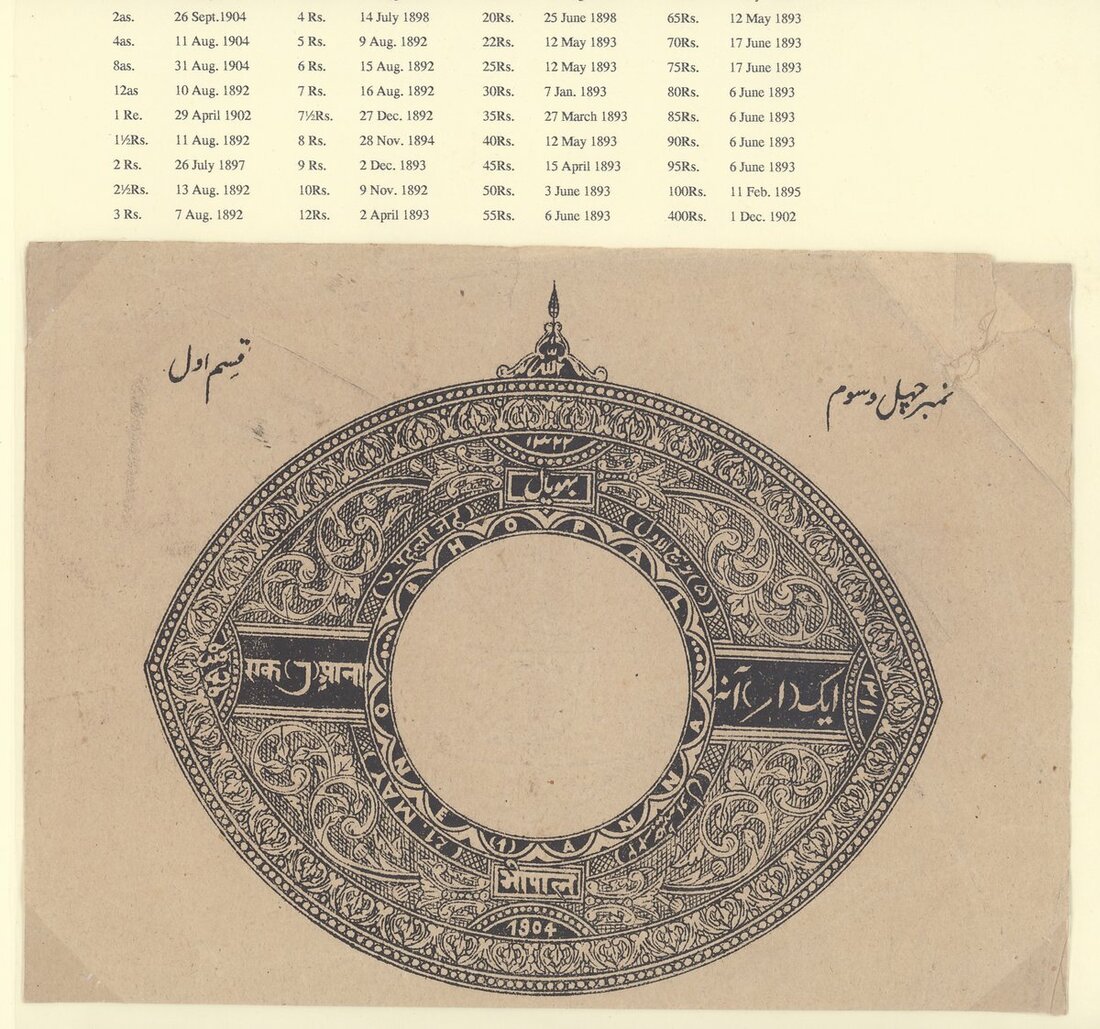 2as. 26 Sept.1904 4 Rs. 14 July 1898 20Rs. 25 June 1898 65Rs. 12 May 1893
4as. 11 Aug. 1904 5 Rs. 9 Aug. 1892 22Rs. 12 May 1893 70Rs. 17 June 1893
8as. 31 Aug. 1904 6 Rs. 15 Aug. 1892 25Rs. 12 May 1893 75Rs. 17 June 1893
12as 10 Aug. 1892 7 Rs. 16 Aug. 1892 30Rs. 7 Jan. 1893 80Rs. 6 June 1893
1 Re. 29 April 1902 7½Rs. 27 Dec. 1892 35Rs. 27 March 1893 85Rs. 6 June 1893
1½Rs. 11 Aug. 1892 8 Rs. 28 Nov. 1894 40Rs. 12 May 1893 90Rs. 6 June 1893
2 Rs. 26 July 1897 9 Rs. 2 Dec. 1893 45Rs. 15 April 1893 95Rs. 6 June 1893
2½Rs. 13 Aug. 1892 10Rs. 9 Nov. 1892 50Rs. 3 June 1893 100Rs. 11 Feb. 1895
3 Rs. 7 Aug. 1892 12Rs. 2 April 1893 55Rs. 6 June 1893 400Rs. 1 Dec. 1902
نمبر چہل و سوم
قسم اول
الله
۱۳۲۲
بھوپال
BHOPAL
ایک (۱؍) آنہ
एक (J) आना
ONE (1) ANNA
21. MAY
भोपाल
1904